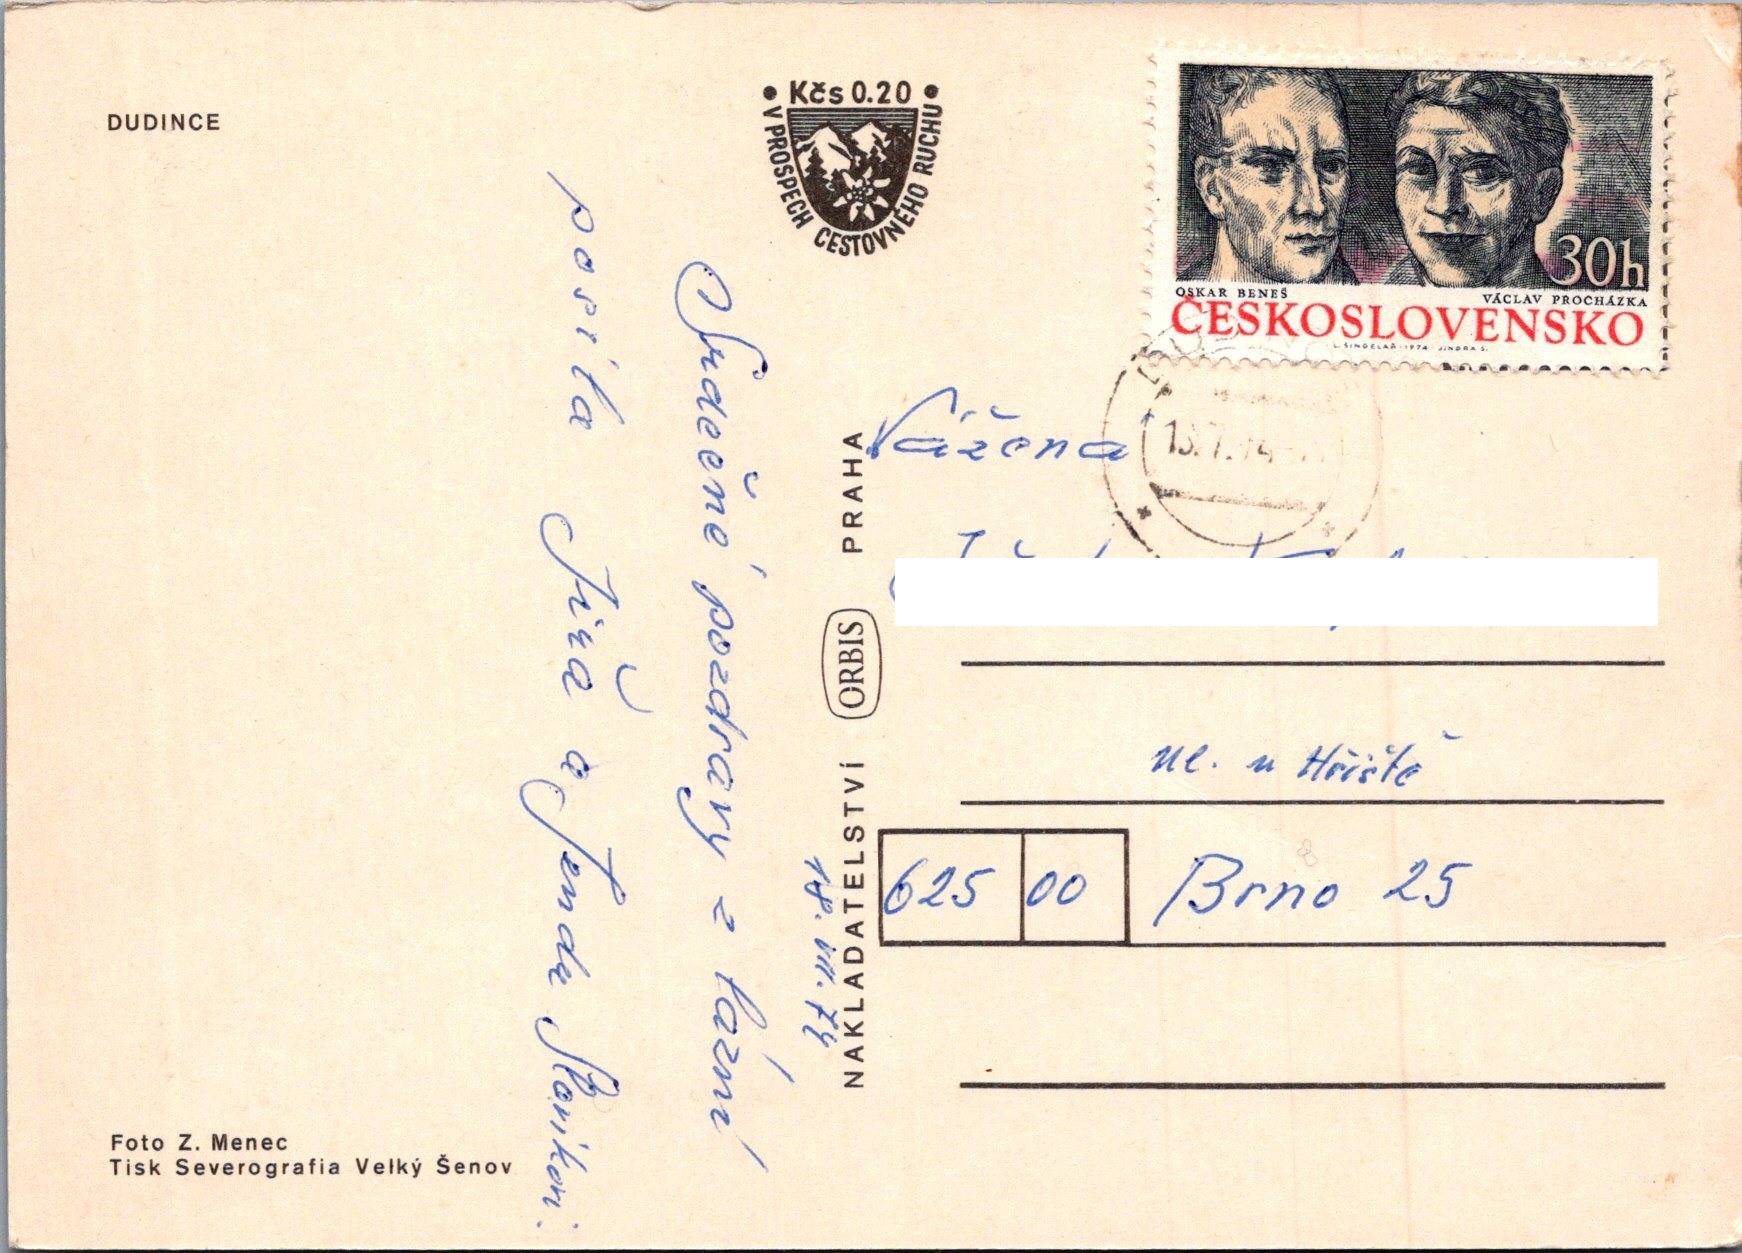 DUDINCE
Kčs 0.20
V PROSPECH CESTOVNÉHO RUCHU
30h
OSKAR BENEŠ
VÁCLAV PROCHÁZKA
ČESKOSLOVENSKO
L. ŠINDELÁŘ 1974 JINDRA S.
Srdečné pozdravy z lázní
posílá Jiřa a Jenda
18. VII. 74
NAKLADATELSTVÍ ORBIS PRAHA
Vážená
ul. u Hřiště
625 00 Brno 25
Foto Z. Menec
Tisk Severografia Velký Šenov